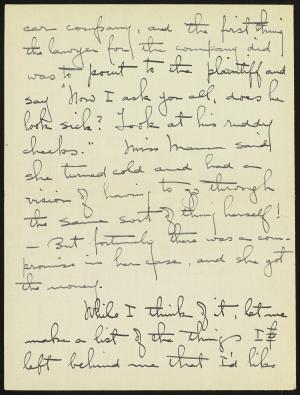 car company, and the first thing
the lawyer for the company did
was to point to the plaintiff and
say "Now I ask you all, does he
look sick? Look at his ruddy
cheeks." Miss Mann said
she turned cold and had a
vision of having to go through
the same sort of thing herself!
— But fortunately there was a com-
promise in her case, and she got
the money.
While I think of it, let me
make a list of the things I
left behind me that I'd like